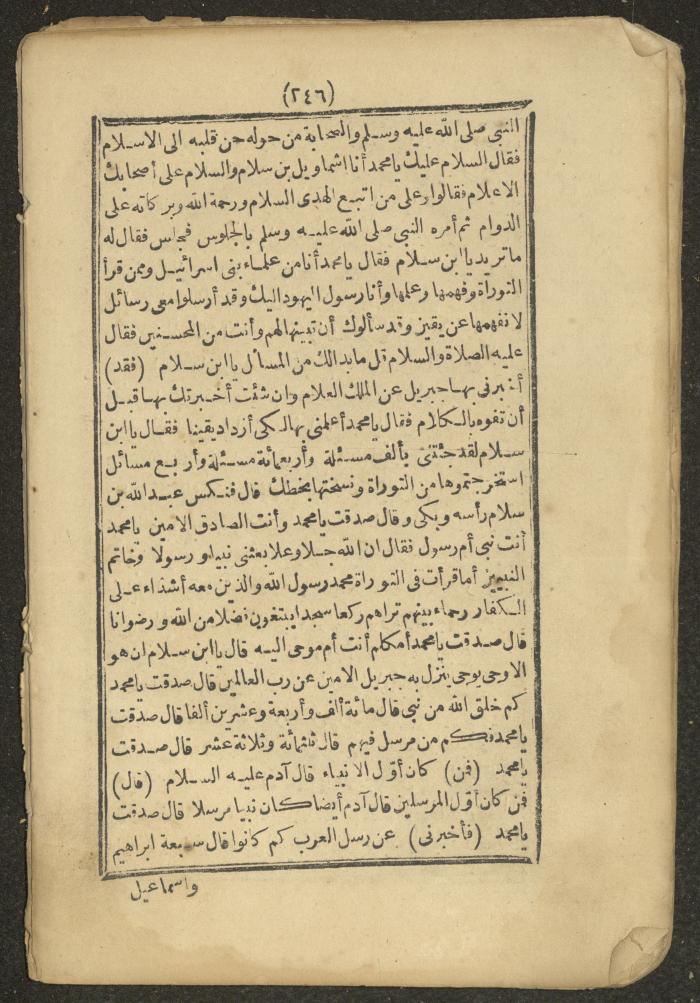 (٢٤٦)
النبى صلى الله عليه وسلم والصحابة من حوله حن قلبه الى الاسلام
فقال السلام عليك يا محمد أنا اشماويل بن سلام والسلام على أصحابك
الاعلام فقالوا وعلى من اتبع الهدى السلام ورحمة الله وبركاته على
الدوام ثم أمره النبى صلى الله عليه وسلم بالجلوس فجلس فقال له
ما تريد يا ابن سلام فقال يا محمد أنا من علماء بنى اسرائيل وممن قرأ
التوراة وفهمها وعلمها وأنا رسول اليهود اليك وقد أرسلوا معى رسائل
لا نفهمها عن يقين وقد سألوك أن تبينها لهم وأنت من المحسنين فقال
عليه الصلاة والسلام قل ما بدا لك من المسائل يا ابن سلام (فقد)
أخبرنى بها جبريل عن الملك العلام وان شئت أخبرتك بها قبل
أن تفوه بالكلام فقال يا محمد أعلمنى بها لكى أزداد يقينا فقال يا ابن
سلام لقد جئتنى بألف مسئلة وأربعمائة مسئلة وأربع مسائل
استخرجتموها من التوراة ونسختها بخطك قال فنكس عبد الله بن
سلام رأسه وبكى وقال صدقت يا محمد وأنت الصادق الامين يا محمد
أنت نبى أم رسول فقال ان الله جلا وعلا بعثنى نبيا ورسولا وخاتم
النبيين أما قرأت فى التوراة محمد رسول الله والذين معه أشداء على
الكفار رحماء بينهم تراهم ركعا سجدا يبتغون فضلا من الله ورضوانا
قال صدقت يا محمد أمكلم أنت أم موحى اليه قال يا ابن سلام ان هو
الا وحى يوحى ينزل به جبريل الامين عن رب العالمين قال صدقت يا محمد
كم خلق الله من نبى قال مائة ألف وأربعة وعشرين ألفا قال صدقت
يا محمد فكم من مرسل فيهم قال ثلثمائة وثلاثة عشر قال صدقت
يا محمد (فمن) كان أول الانبياء قال آدم عليه السلام (قال)
فمن كان أول المرسلين قال آدم أيضا كان نبيا مرسلا قال صدقت
يا محمد (فأخبرنى) عن رسل العرب كم كانوا قال سبعة ابراهيم
واسماعيل